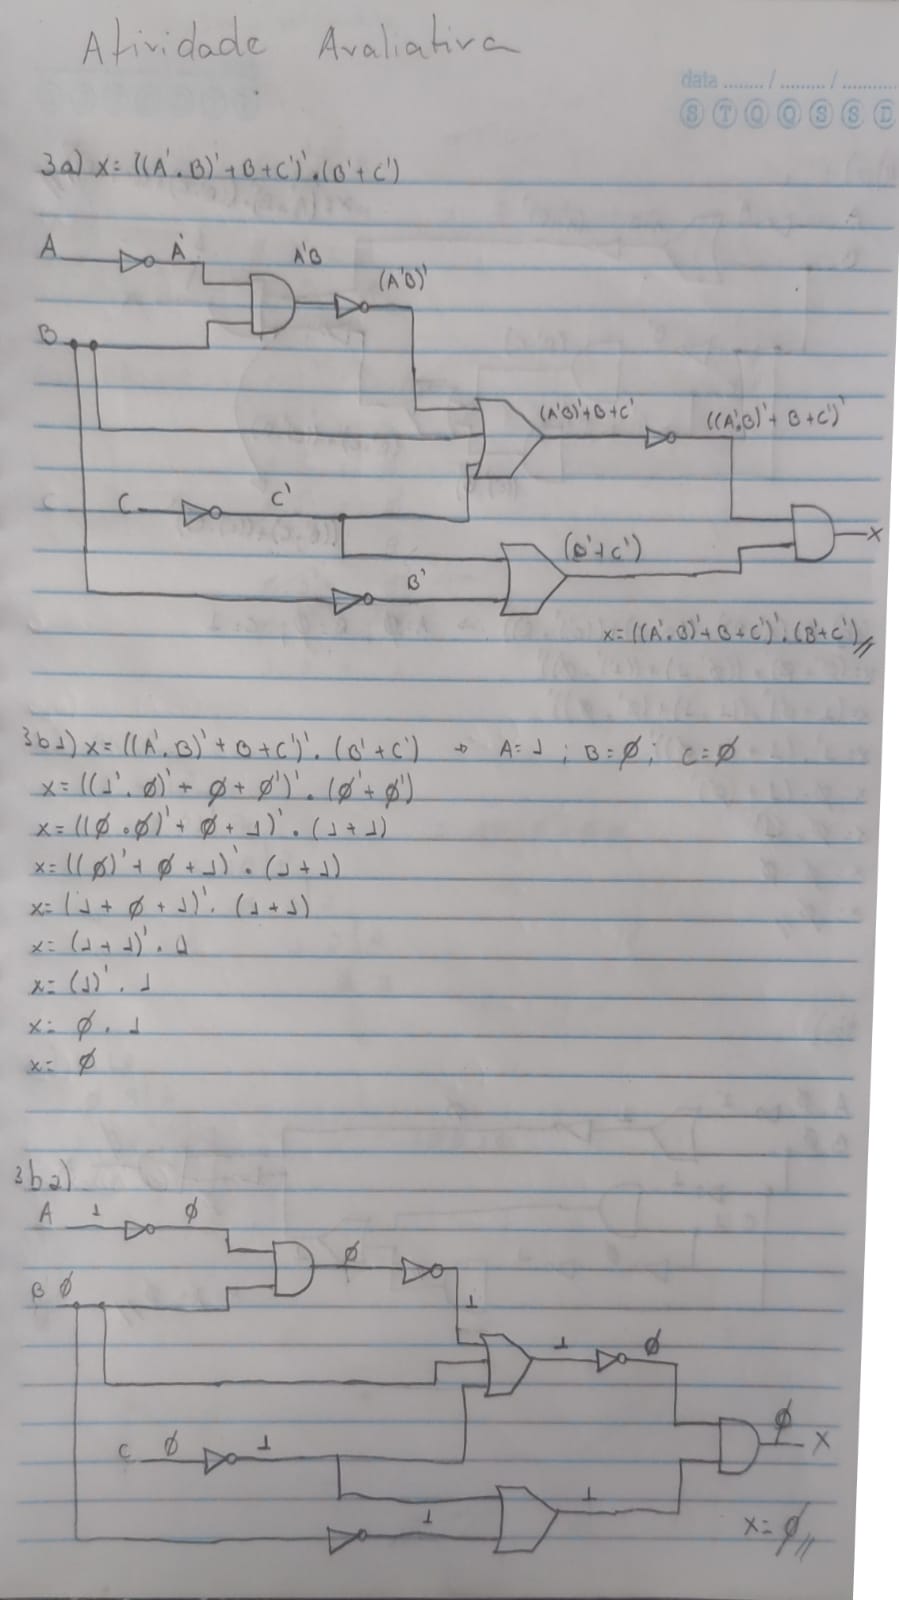 Atividade Avaliativa
data ......../ ........./ ...........
S T Q Q S S D
3a) x= ((A'.B)'+B+C')'.(B'+C')
A A' A'B (A'B)'
B
(A'B)'+B+C' ((A'.B)'+B+C')'
C C' (B'+C') X
B'
x= ((A'.B)'+B+C')'.(B'+C')//
3b1) x= ((A'.B)'+B+C')'.(B'+C') → A=1 ; B=Ø ; C=Ø
x= ((1'.Ø)'+Ø+Ø')'.(Ø'+Ø')
x= ((Ø.Ø)'+Ø+1)'.(1+1)
x= ((Ø)'+Ø+1)'.(1+1)
x= (1+Ø+1)'.(1+1)
x= (1+1)'.1
x= (1)'.1
x= Ø.1
x= Ø
3b2)
A 1 Ø
Ø
B Ø
1
1 Ø
C Ø 1 Ø X
1 1
x= Ø//